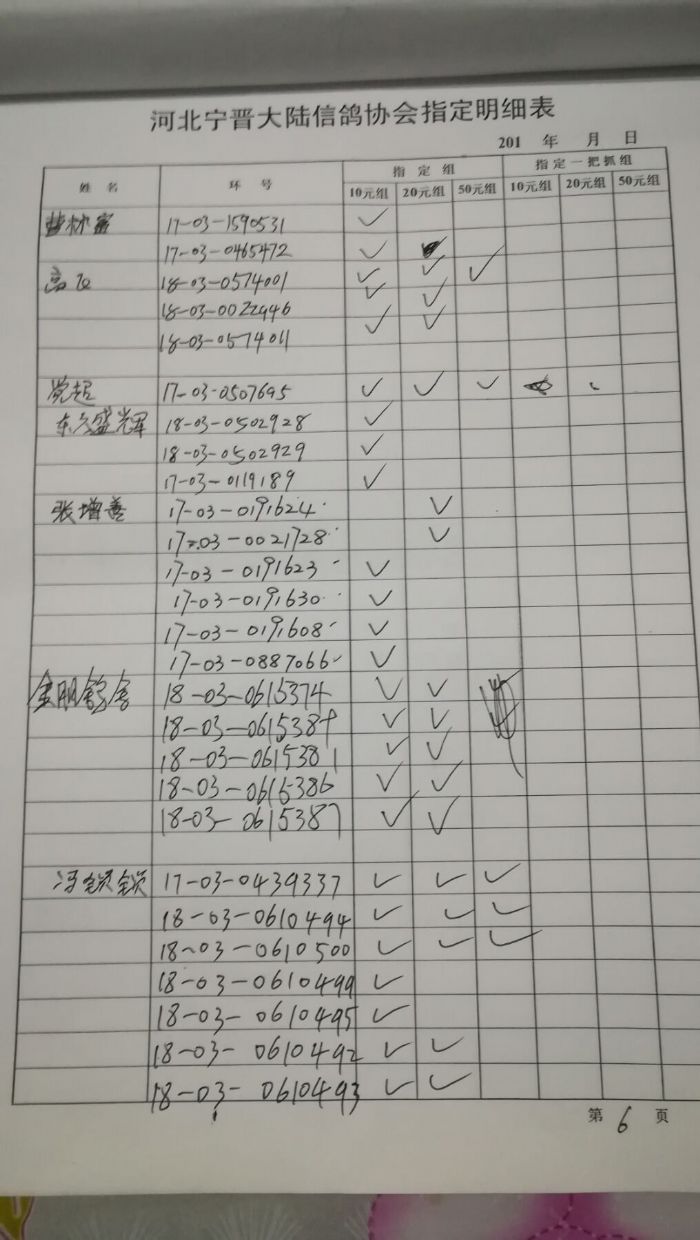 河北宁晋大陆信鸽协会指定明细表
201 年 月 日
姓名 环号 指定组 指定一把抓组
10元组 20元组 50元组 10元组 20元组 50元组
17-03-1590531 ✓
17-03-0465472 ✓
高飞 18-03-0574001 ✓ ✓ ✓
18-03-0022446 ✓ ✓
18-03-0574011 ✓ ✓
党超 17-03-0507695 ✓ ✓ ✓
东方盛辉 18-03-0502928 ✓
18-03-0502929 ✓
17-03-0119189 ✓
张增善 17-03-0191624 ✓
17-03-0021728 ✓
17-03-0191623 ✓
17-03-0191630 ✓
17-03-0191608 ✓
17-03-0887066 ✓
金朋鸽舍 18-03-0615374 ✓ ✓
18-03-0615389 ✓ ✓
18-03-0615381 ✓ ✓
18-03-0615386 ✓ ✓
18-03-0615387 ✓ ✓
冯锁锁 17-03-0439337 ✓ ✓ ✓
18-03-0610494 ✓ ✓ ✓
18-03-0610500 ✓ ✓ ✓
18-03-0610499 ✓
18-03-0610495 ✓
18-03-0610492 ✓ ✓
18-03-0610493 ✓ ✓
第 6 页